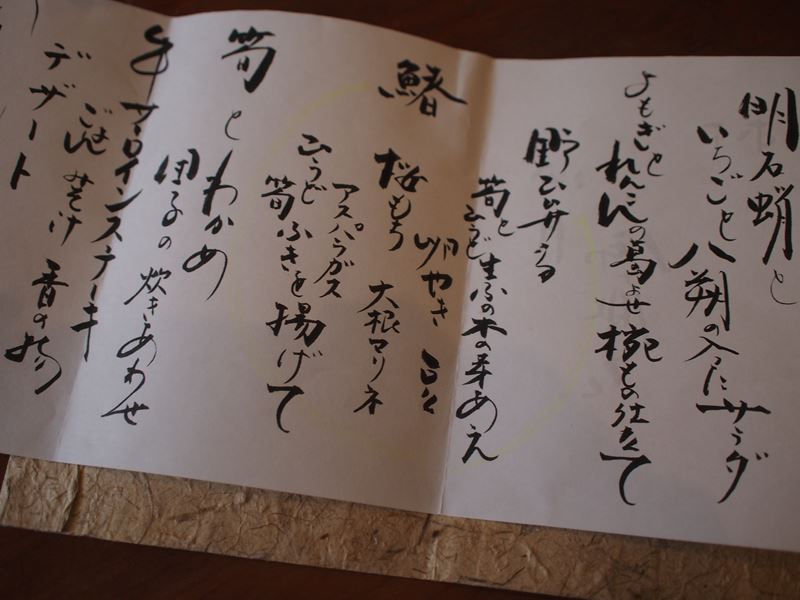 明石蛸と
いちごと八朔の入ったサラダ
よもぎとれんこんの葛よせ椀もの仕立て
野ひめうる
筍とひうど生ふの木の芽あえ
卵やき 豆
鰆 桜もち 大根マリネ
アスパラガス
ひうど 筍ふきを揚げて
筍とわかめ
団子の炊きあわせ
牛サーロインステーキ
ごはん みそ汁 香の物
デザート